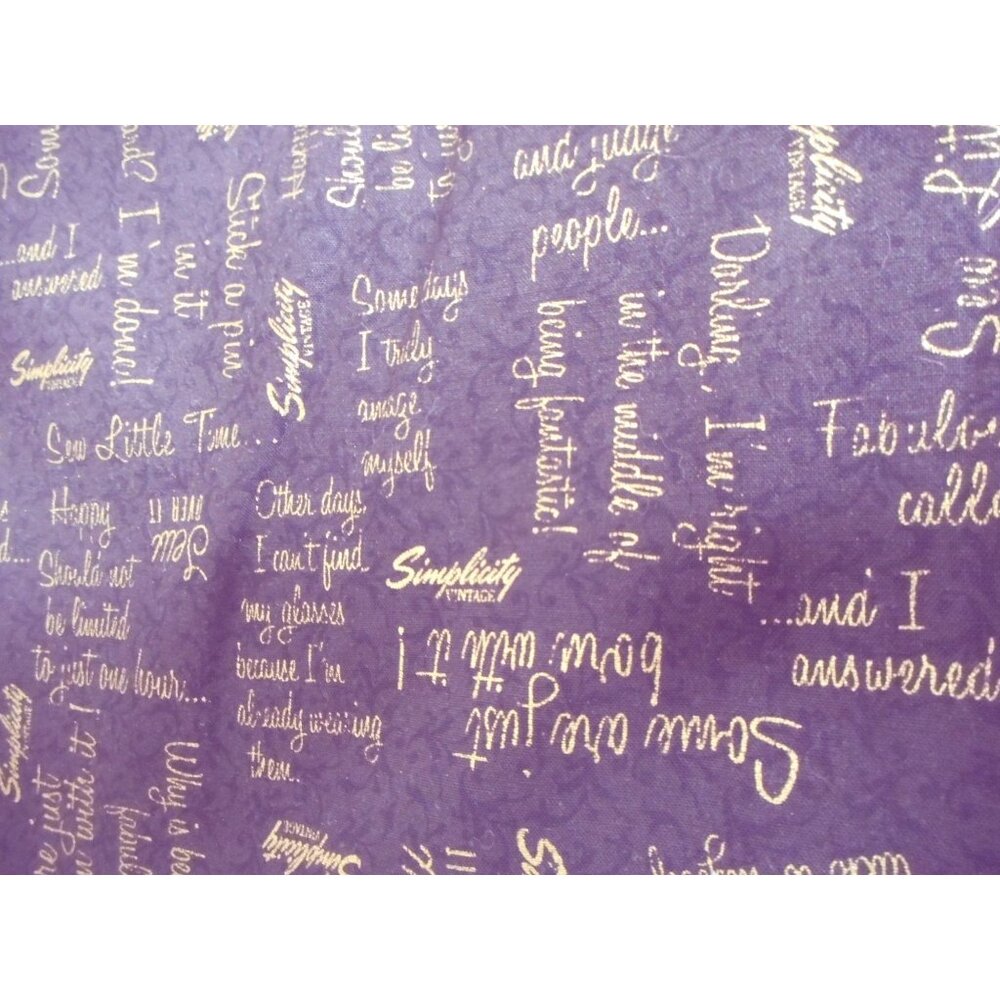 and judge
people...
Simplicity
VINTAGE
...and I
answered
I'm done!
Stick a pin
in it
Simplicity
VINTAGE
Some days
I truly
amaze
myself
Darling, I'm right
in the middle of
being fantastic!
Simplicity
Sew Little Time...
Happy
Should not
be limited
to just one hour...
Sew
OVER IT
Other days,
I can't find
my glasses
because I'm
already wearing
them.
Simplicity
VINTAGE
Some are just
born with it!
...and I
answered
Simplicity
VINTAGE
Why is
re just
with it!
Simplicity
VINTAGE